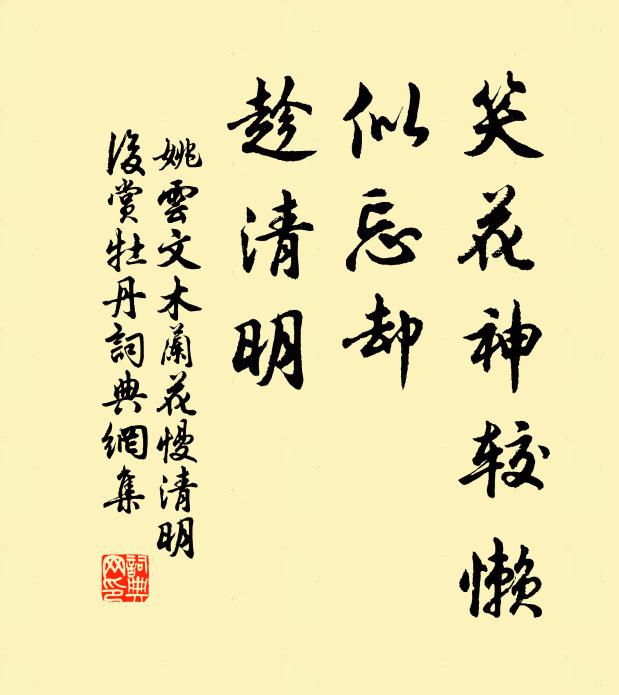 笑花神较懒
似忘却
趁清明
姚雲文木蘭花慢清明
後賞牡丹詞典網集
詞典
网印